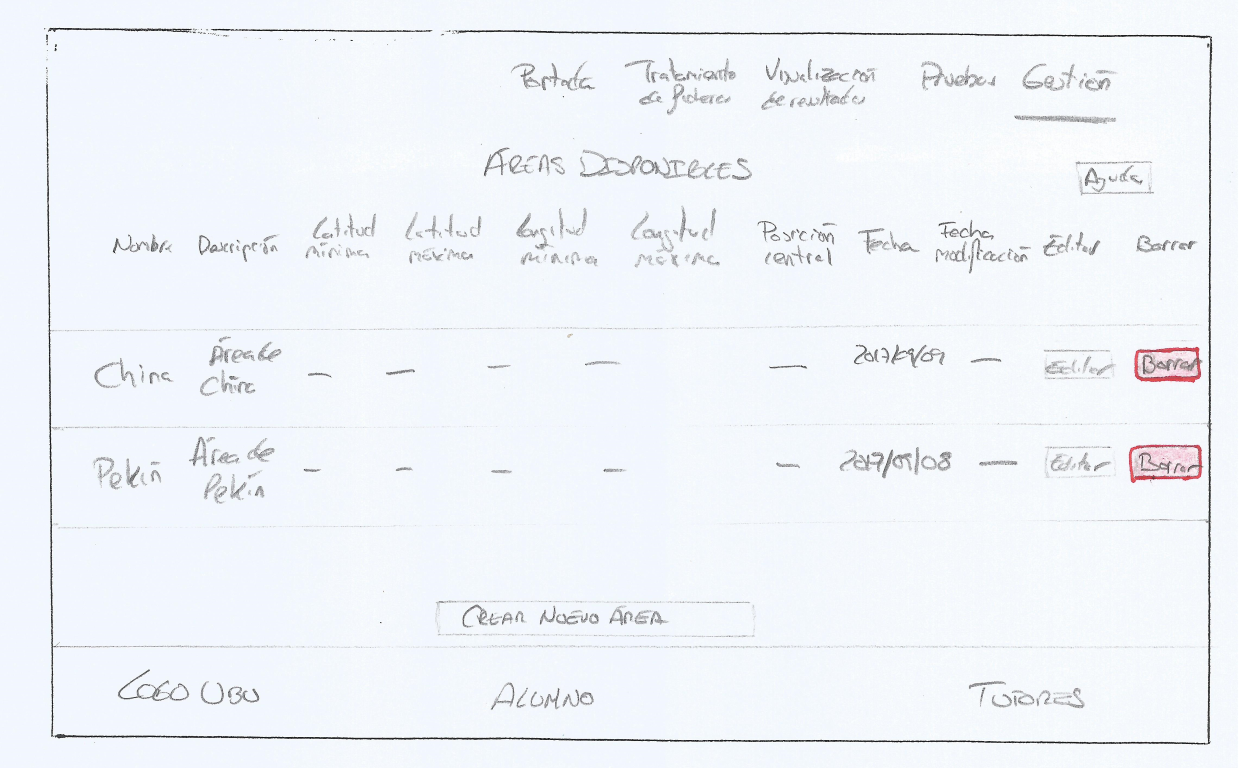 Portada Tratamiento de ficheros Visualización de resultados Pruebas Gestión
ÁREAS DISPONIBLES
Ayuda
Nombre Descripción Latitud mínima Latitud máxima Longitud mínima Longitud máxima Posición central Fecha Fecha modificación Editar Borrar
China Área de China — — — — — 2017/09/09 — Editar Borrar
Pekín Área de Pekín — — — — — 2017/09/08 — Editar Borrar
CREAR NUEVO ÁREA
LOGO UBU ALUMNO TUTORES